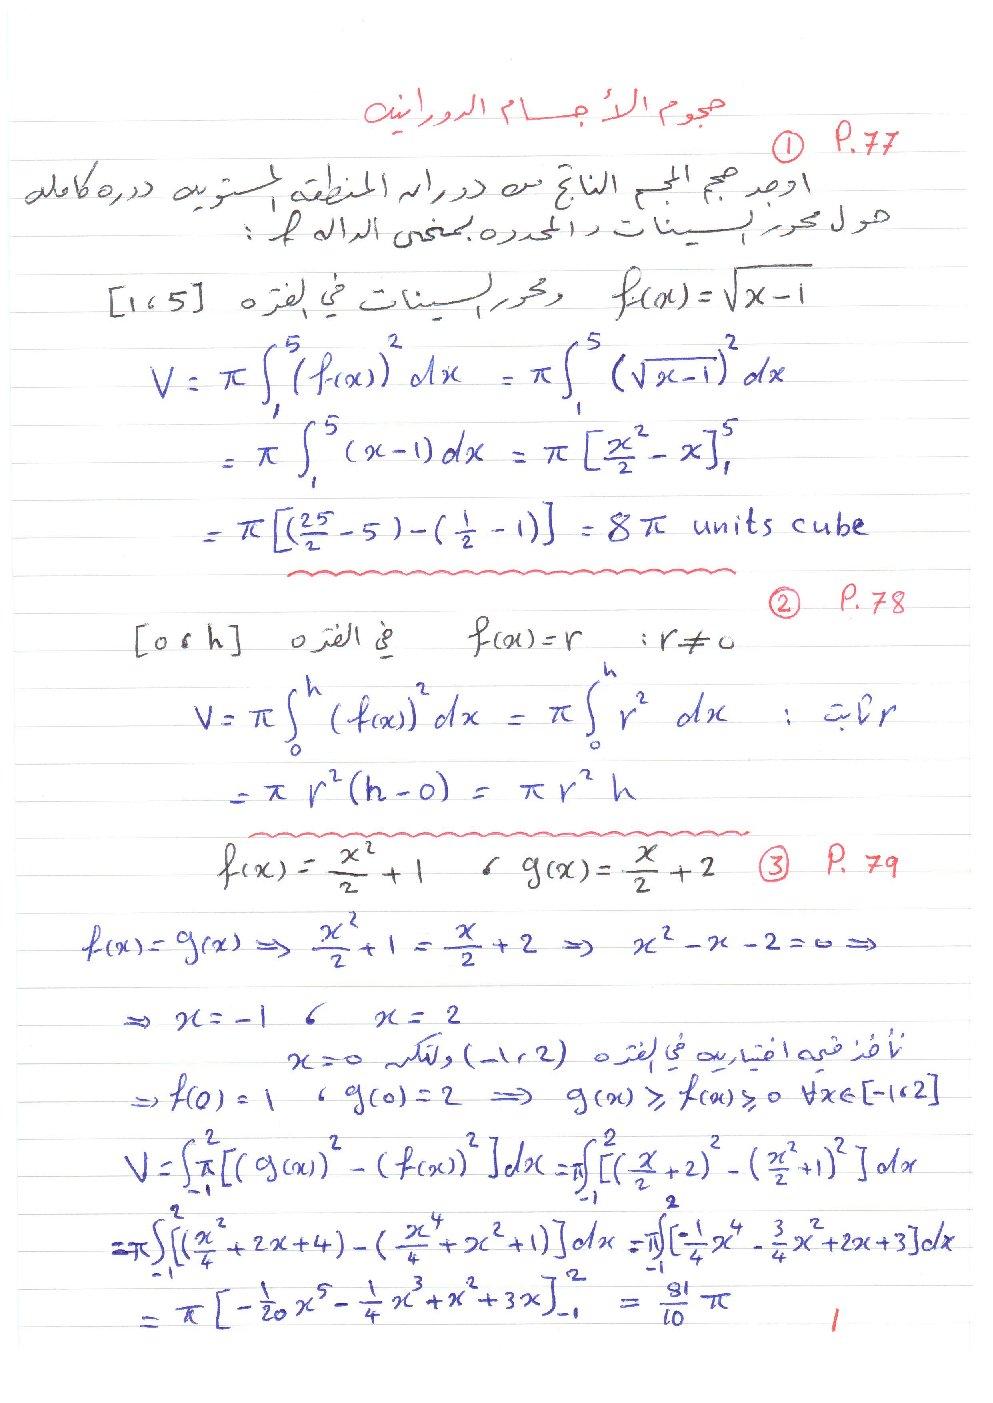 حجوم الأجسام الدورانيه
① P.77
اوجد حجم المجسم الناتج من دوران المنطقه المستويه دوره كامله
حول محور السينات والمحدده بمنحنى الداله f :
f(x) = √(x-1) ومحور السينات في الفتره [1،5]
V = π∫₁⁵ (f(x))² dx = π∫₁⁵ (√(x-1))² dx
= π∫₁⁵ (x-1) dx = π [x²/2 - x]₁⁵
= π[(25/2 - 5) - (1/2 - 1)] = 8π units cube
② P.78
f(x) = r : r ≠ 0 في الفتره [0،h]
V = π∫₀ʰ (f(x))² dx = π∫₀ʰ r² dx ; r ثابت
= π r² (h-0) = π r² h
③ P.79
f(x) = x²/2 + 1 ، g(x) = x/2 + 2
f(x) = g(x) ⇒ x²/2 + 1 = x/2 + 2 ⇒ x² - x - 2 = 0 ⇒
⇒ x = -1 ، x = 2
نأخذ قيمه اختياريه في الفتره (-1،2) ولتكن x = 0
⇒ f(0) = 1 ، g(0) = 2 ⇒ g(x) ≥ f(x) ≥ 0 ∀x∈[-1،2]
V = ∫₋₁² π[(g(x))² - (f(x))²] dx = π∫₋₁² [(x/2 + 2)² - (x²/2 + 1)²] dx
= π∫₋₁² [(x²/4 + 2x + 4) - (x⁴/4 + x² + 1)] dx = π∫₋₁² [-1/4 x⁴ - 3/4 x² + 2x + 3] dx
= π [-1/20 x⁵ - 1/4 x³ + x² + 3x]₋₁² = 81/10 π
1